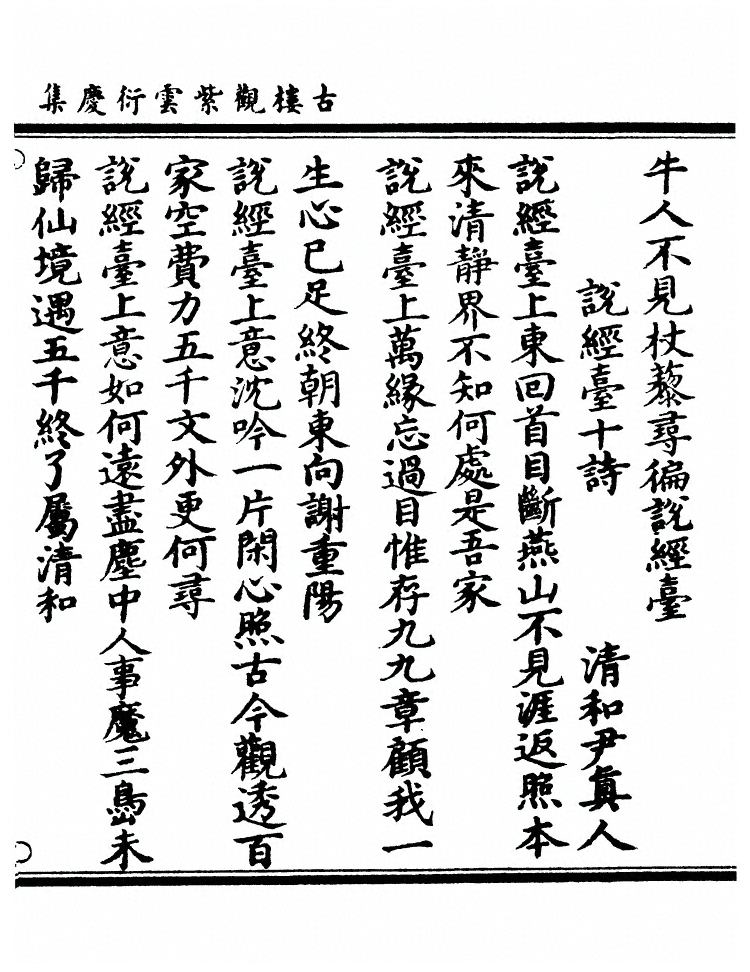 古樓觀紫雲衍慶集
牛人不見杖藜尋徧說經臺
說經臺十詩　清和尹眞人
說經臺上東回首目斷燕山不見涯返照本
來清靜界不知何處是吾家
說經臺上萬緣忘過目惟存九九章顧我一
生心已足終朝東向謝重陽
說經臺上意沈吟一片閑心照古今觀透百
家空費力五千文外更何尋
說經臺上意如何遠盡塵中人事魔三島未
歸仙境遇五千終了屬清和